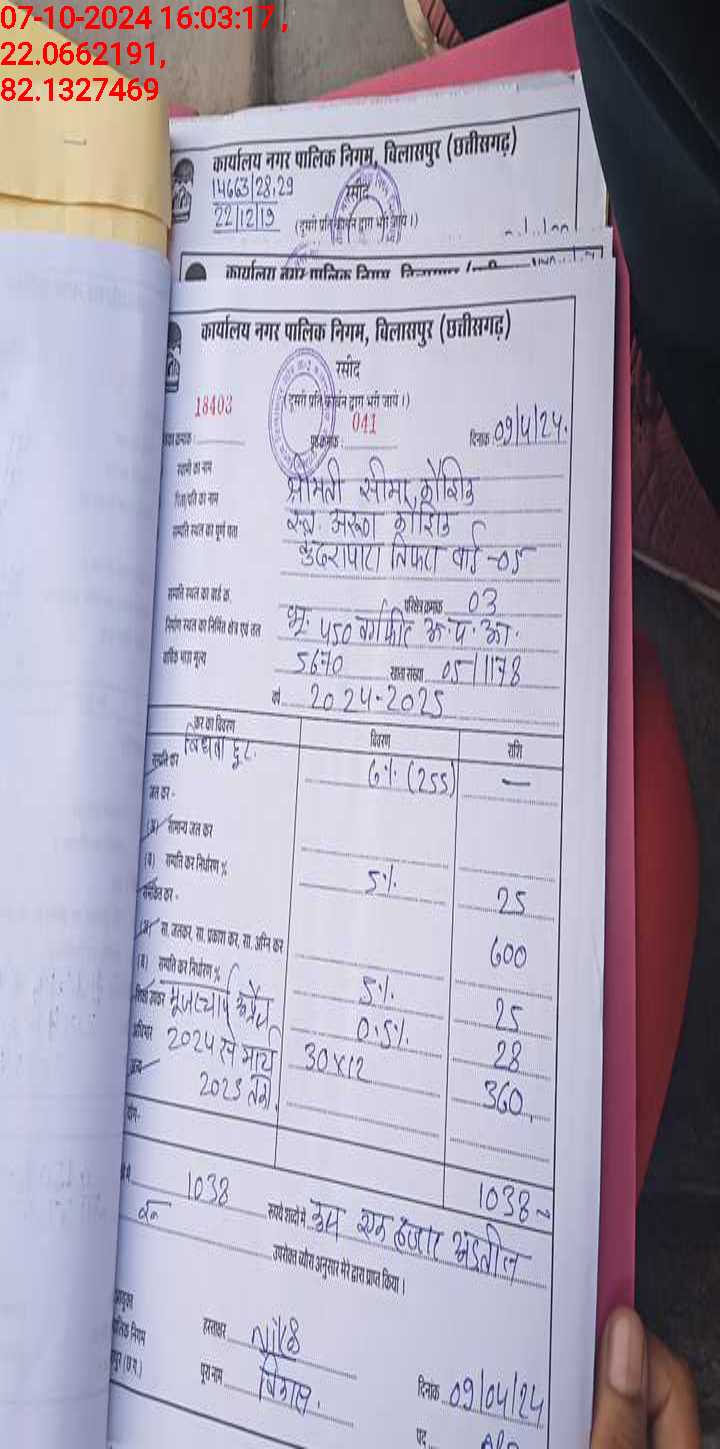 07-10-2024 16:03:17,
22.0662191,
82.1327469
कार्यालय नगर पालिक निगम, बिलासपुर (छत्तीसगढ़)
14663/28,29
रसीद
22/12/19
कार्यालय नगर पालिक निगम
कार्यालय नगर पालिक निगम, बिलासपुर (छत्तीसगढ़)
रसीद
18403
(दूसरी प्रति कार्बन द्वारा भरी जाये।)
041
दिनांक 09/4/24.
स्वामी का नाम श्रीमती सीमा कौशिक
पिता/पति का नाम स्व. अरूण कौशिक
सम्पत्ति स्थल का पूर्ण पता कुंदरापारा तिफरा वार्ड -05
सम्पत्ति स्थल का वार्ड क्र. परिक्षेत्र क्रमांक 03
निर्माण स्थल का निर्मित क्षेत्र एवं तल भू. 450 वर्गफीट
वार्षिक भाड़ा मूल्य 5670 खाता संख्या 05/1178
वर्ष 2024-2025
कर का विवरण विवरण राशि
विधवा छूट.
सम्पत्ति कर 6% (255) —
जल कर -
(अ) सामान्य जल कर
(ब) सम्पत्ति कर निर्धारण % 5% 25
समेकित कर -
(अ) सा. जलकर, सा. प्रकाश कर, सा. अग्नि कर 600
(ब) सम्पत्ति कर निर्धारण % 5% 25
शिक्षा उपकर 0.5% 28
यूजरचार्ज अप्रैल
2024 से मार्च 30x12 360
अन्य 2025 तक.
योग- 1038
1038 रूपये शब्दों में एक हजार अड़तीस
उपरोक्त ब्योरा अनुसार मेरे द्वारा प्राप्त किया।
हस्ताक्षर
पूरा नाम विकास.
दिनांक 09/04/24
पद